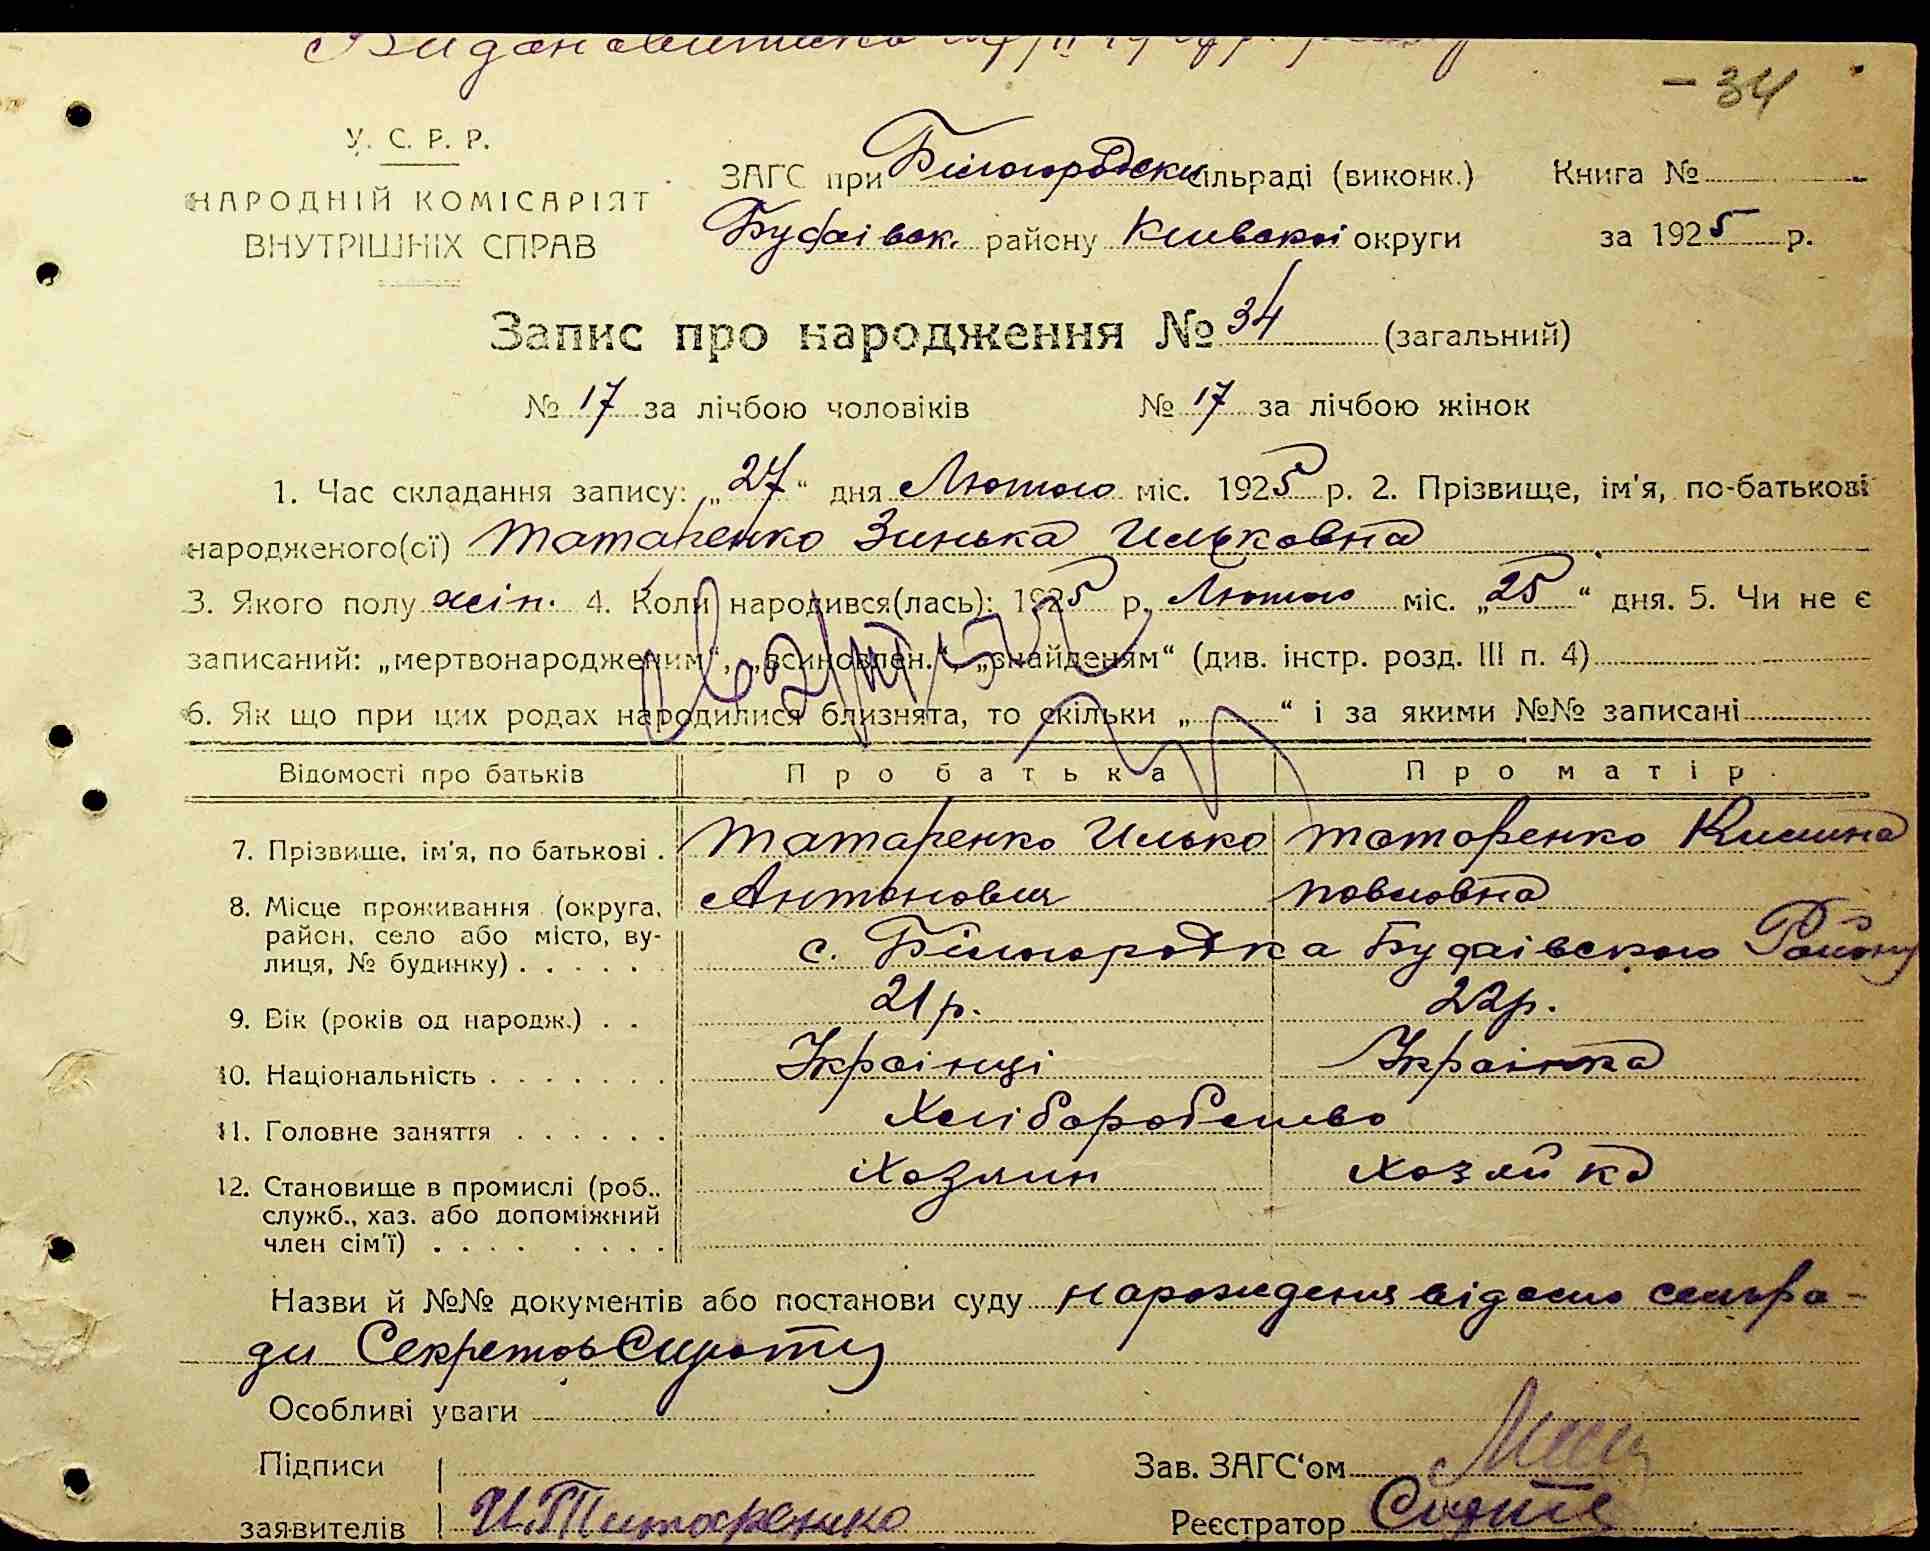 - 34
У. С. Р. Р.
НАРОДНІЙ КОМІСАРІЯТ
ВНУТРІШНІХ СПРАВ
ЗАГС при Білогородськ сільраді (виконк.) Книга №
Будаівск. району Київської округи за 1925 р.
Запис про народження № 34 (загальний)
№ 17 за лічбою чоловіків № 17 за лічбою жінок
1. Час складання запису: „27“ дня Лютого міс. 1925 р. 2. Прізвище, ім'я, по-батькові
народженого(ої) Татаренко Зинька Ильковна
3. Якого полу жін. 4. Коли народився(лась): 1925 р. Лютого міс. „25“ дня. 5. Чи не є
записаний: „мертвонародженим“, „всиновлен.“, „знайденям“ (див. інстр. розд. III п. 4)
6. Як що при цих родах народилися близнята, то скільки „ “ і за якими №№ записані
Відомості про батьків Про батька Про матір.
7. Прізвище, ім'я, по батькові . Татаренко Илько Татаренко Килина
Антонович Павловна
8. Місце проживання (округа, район, село або місто, ву-
лиця, № будинку) . . . . . . с. Білогородка Будаівского Району
9. Вік (років од народж.) . . 21 р. 22 р.
10. Національність . . . . . . . Украінці Украінка
11. Головне заняття . . . . . . Хліборобство
12. Становище в промислі (роб., Хозяин хозяйка
служб., хаз. або допоміжний
член сім'ї) . . . . . . . .
Назви й №№ документів або постанови суду нарождения відомо сельра-
ди Секретов Сироти
Особливі уваги
Підписи Зав. ЗАГС‘ом
заявителів И. Титаренко Реєстратор